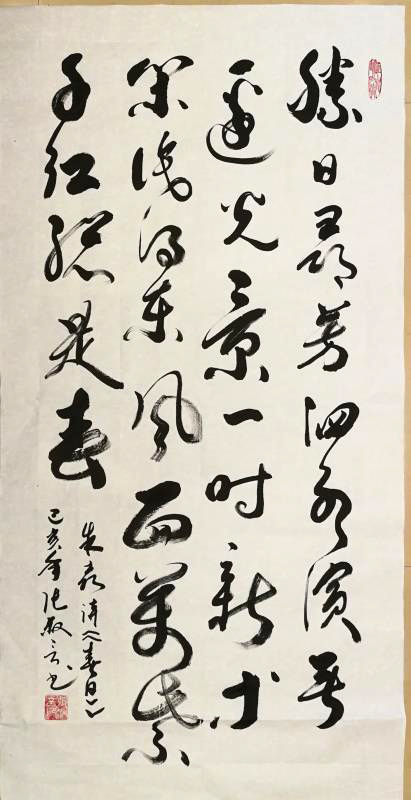 勝日尋芳泗水濱無
邊光景一时新等
閑識得東風面萬紫
千紅總是春
朱熹詩《春日》
己亥年張